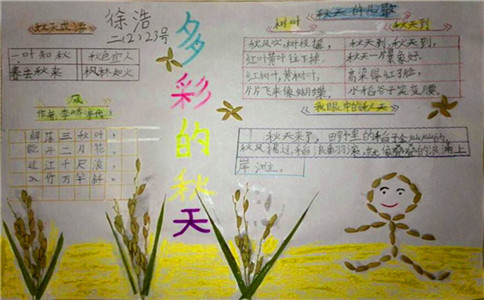 秋天成语
一叶知秋 秋色宜人
春去秋来 枫林如火
风
作者:李峤 年代:
解落三秋叶,
能开二月花。
过江千尺浪,
入竹万竿斜。
徐浩
二(2)23号
多彩的秋天
秋天的儿歌
树叶
秋风吹,树枝摇,
红叶黄叶往下掉。
红树叶,黄树叶,
片片飞来像蝴蝶。
秋天到
秋天到,秋天到,
秋天一片景象好。
高粱
水稻谷子笑弯腰。
我眼中的秋天
秋天来了,田野里的稻子金灿灿的。
秋风 过稻
岸